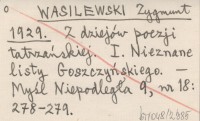 WASILEWSKI Zygmunt
1929. Z dziejów poezji
tatrzańskiej. I. Nieznane
listy Goszczyńskiego. —
Myśl Niepodległa 9, nr 18:
278-279.